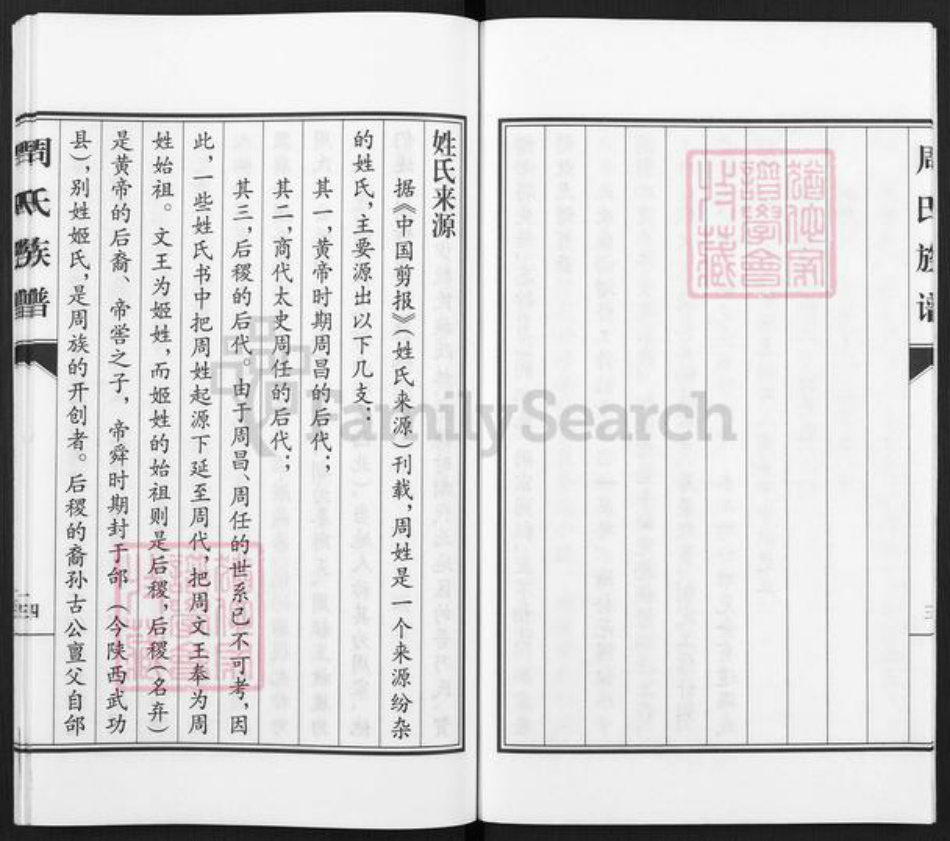 周氏族谱
三
姓氏来源
据《中国剪报》(姓氏来源)刊载,周姓是一个来源纷杂
的姓氏,主要源出以下几支:
其一,黄帝时期周昌的后代;
其二,商代太史周任的后代;
其三,后稷的后代。由于周昌、周任的世系已不可考,因
此,一些姓氏书中把周姓起源下延至周代,把周文王奉为周
姓始祖。文王为姬姓,而姬姓的始祖则是后稷,后稷(名弃)
是黄帝的后裔、帝喾之子,帝舜时期封于邰(今陕西武功
县),别姓姬氏,是周族的开创者。后稷的裔孙古公亶父自邰
周氏族谱
四
FamilySearch